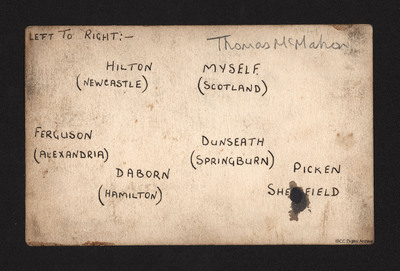 LEFT TO RIGHT:-
Thomas McMahon
HILTON
(NEWCASTLE)
MYSELF
(SCOTLAND)
FERGUSON
(ALEXANDRIA)
DUNSEATH
(SPRINGBURN)
DABORN
(HAMILTON)
PICKEN
SHEFFIELD